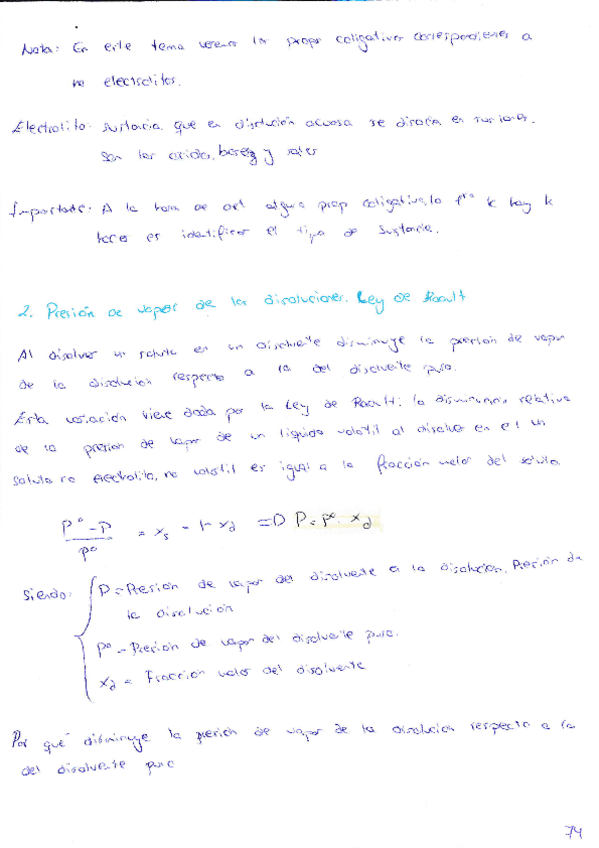 Nota: En este tema veremos las propr coligativas correspondientes a
no electrolitos.
Electrolito: sustancia que en disolución acuosa se disocia en sus iones.
Son los ácidos, bases y sales
Importante: A la hora de alguna prop coligativa, lo 1º k hay k
hacer es identificar el tipo de sustancia.
2. Presión de vapor de las disoluciones. Ley de Raoult
Al disolver un soluto en un disolvente disminuye la presión de vapor
de la disolución respecto a la del disolvente puro.
Esta variación viene dada por la Ley de Raoult: la disminución relativa
de la presión de vapor de un líquido volátil al disolver en el un
soluto no electrolito, no volátil es igual a la fracción molar del soluto.
(P° - P)/P° = xs = 1- xd => P = P° · xd
Siendo: P = Presión de vapor del disolvente a la disolución, Presión de
la disolución
P° = Presión de vapor del disolvente puro.
xd = Fracción molar del disolvente
Por qué disminuye la presión de vapor de la disolución respecto a la
del disolvente puro
74